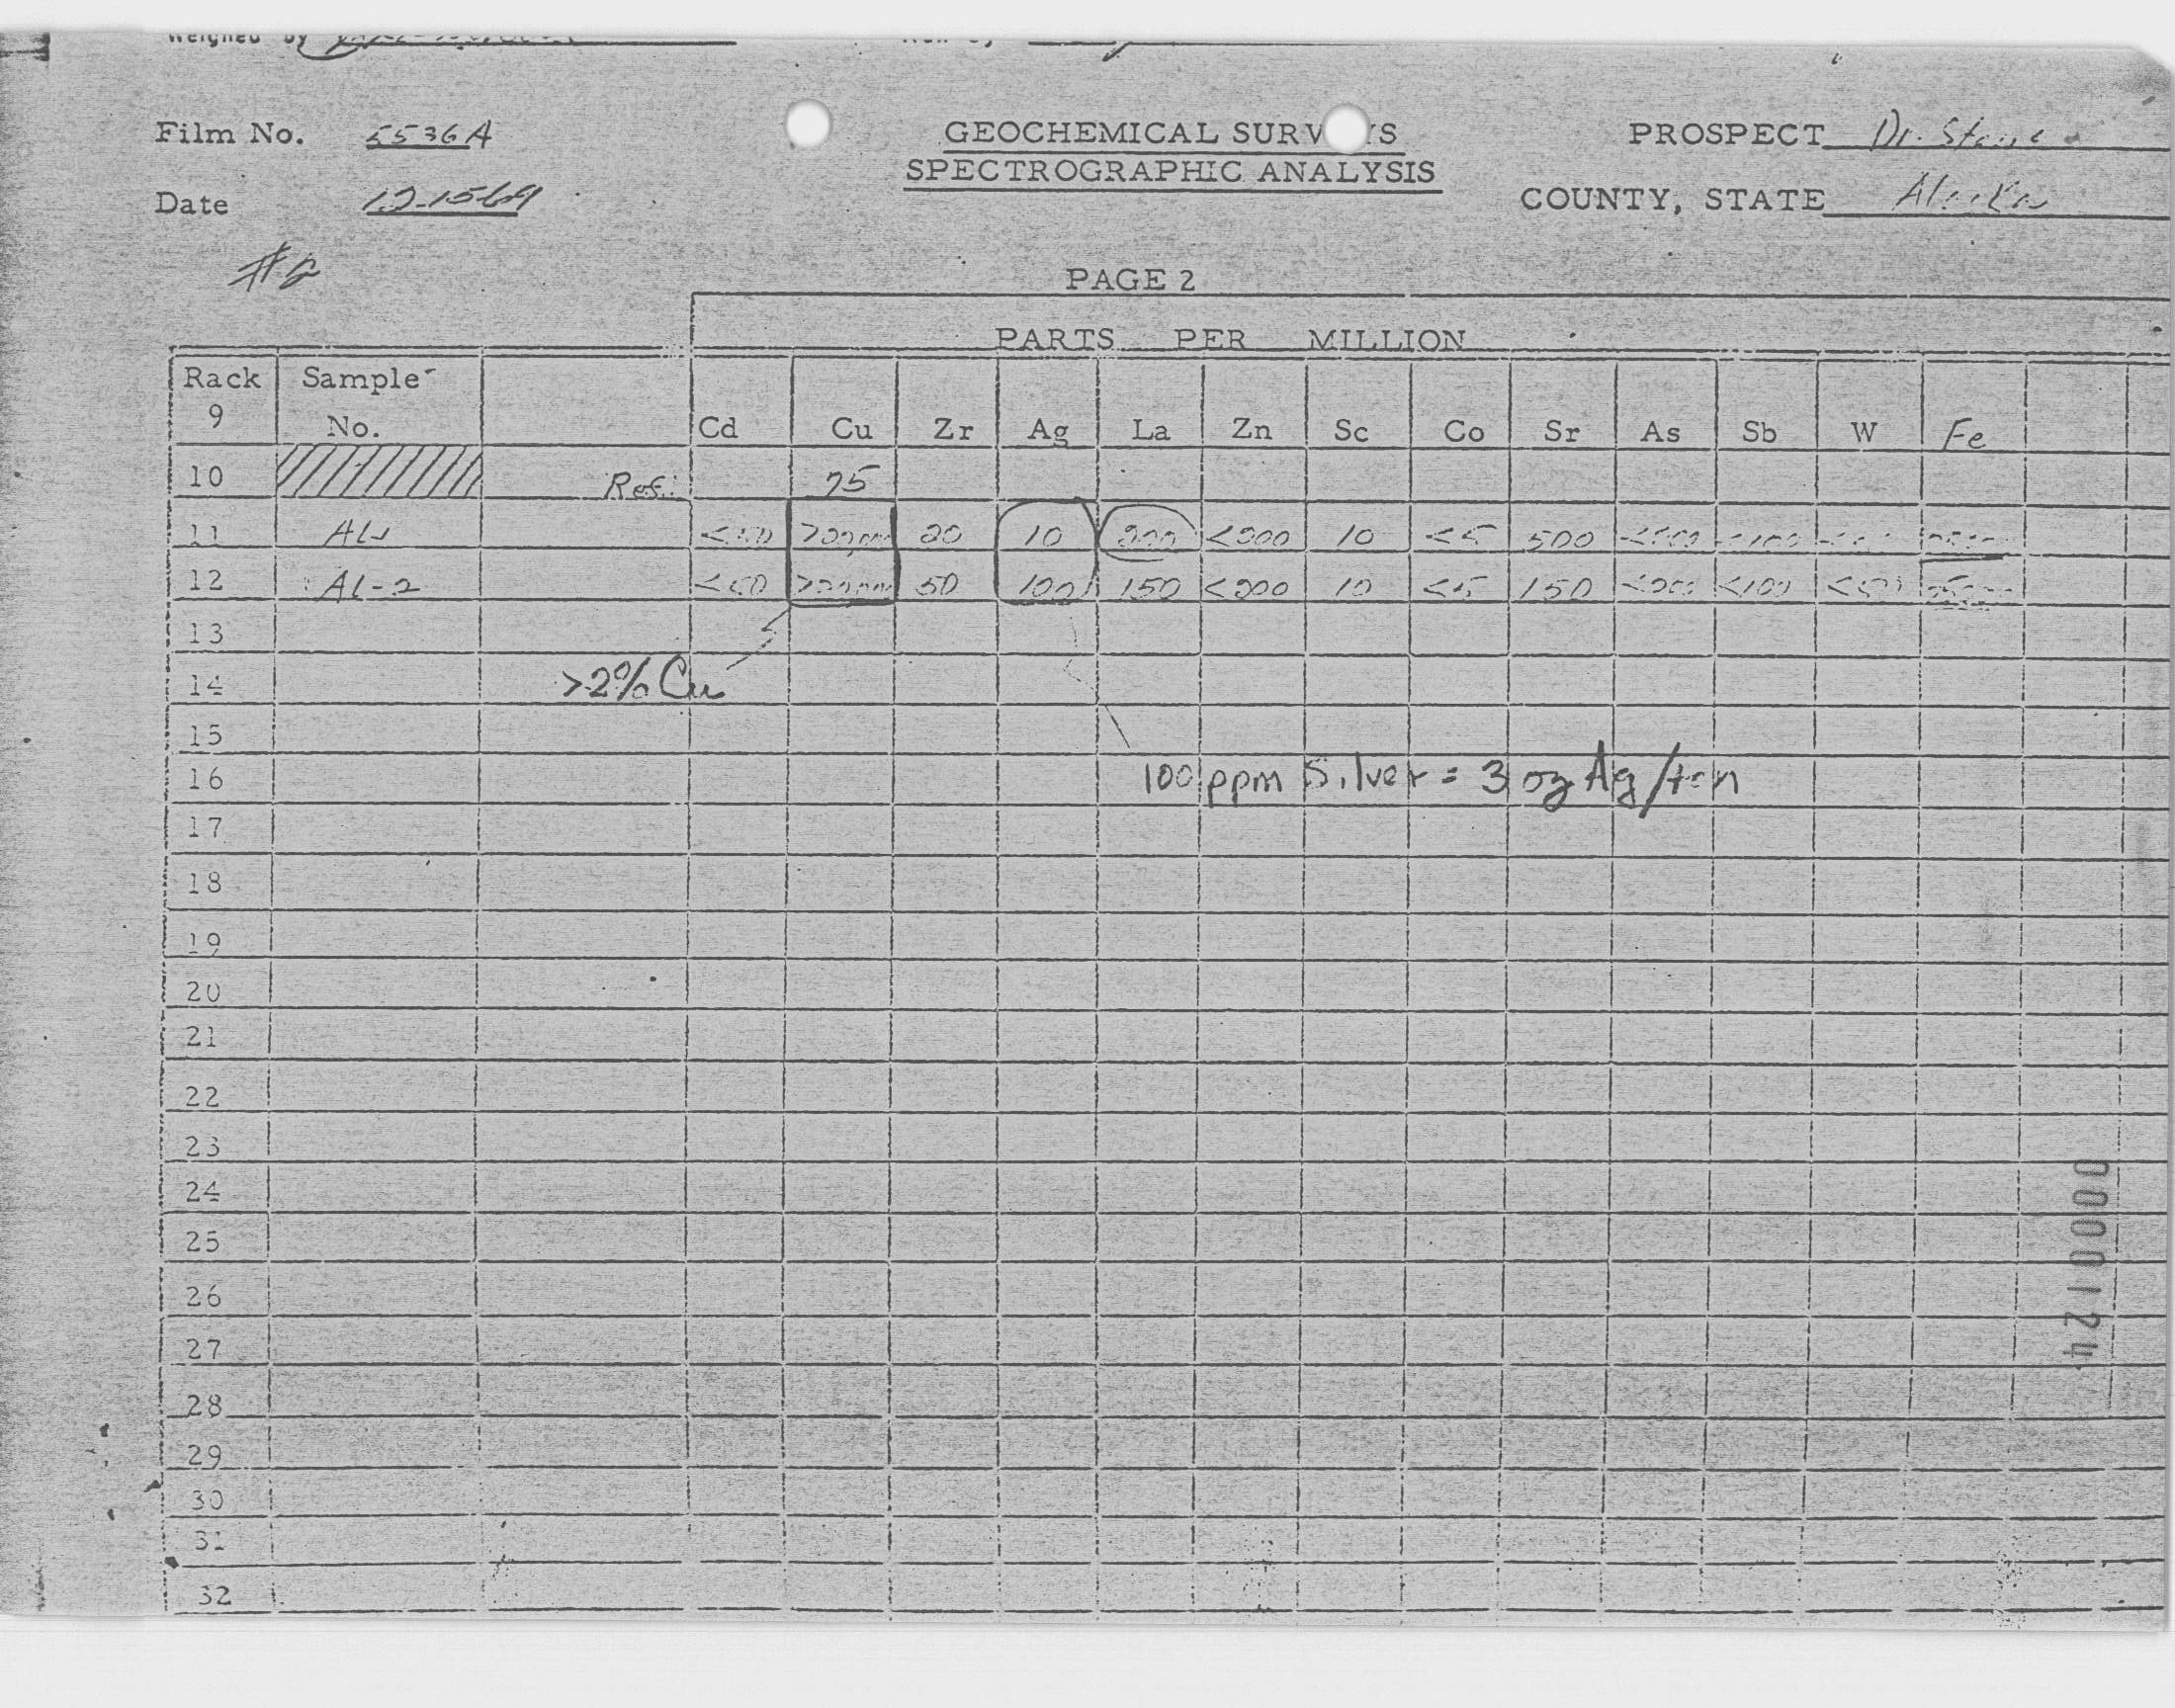 Weighed by
Film No. 5536A
GEOCHEMICAL SURV YS
SPECTROGRAPHIC ANALYSIS
PROSPECT Dr.
Date 12-15-69
COUNTY, STATE Alaska
PAGE 2
PARTS PER MILLION
Rack Sample
9 No. Cd Cu Zr Ag La Zn Sc Co Sr As Sb W Fe
10 Ref: 75
11 <50 20 10 200 <200 10 <5 500
12 AL-2 <50 >20000 50 100 150 <200 10 <5 150 <200 <100 <50
13
14 >2% Cu
15
16 100 ppm Silver = 3 oz Ag/ton
17
18
19
20
21
22
23
24
25
26
27
28
29
30
31
32
0000124